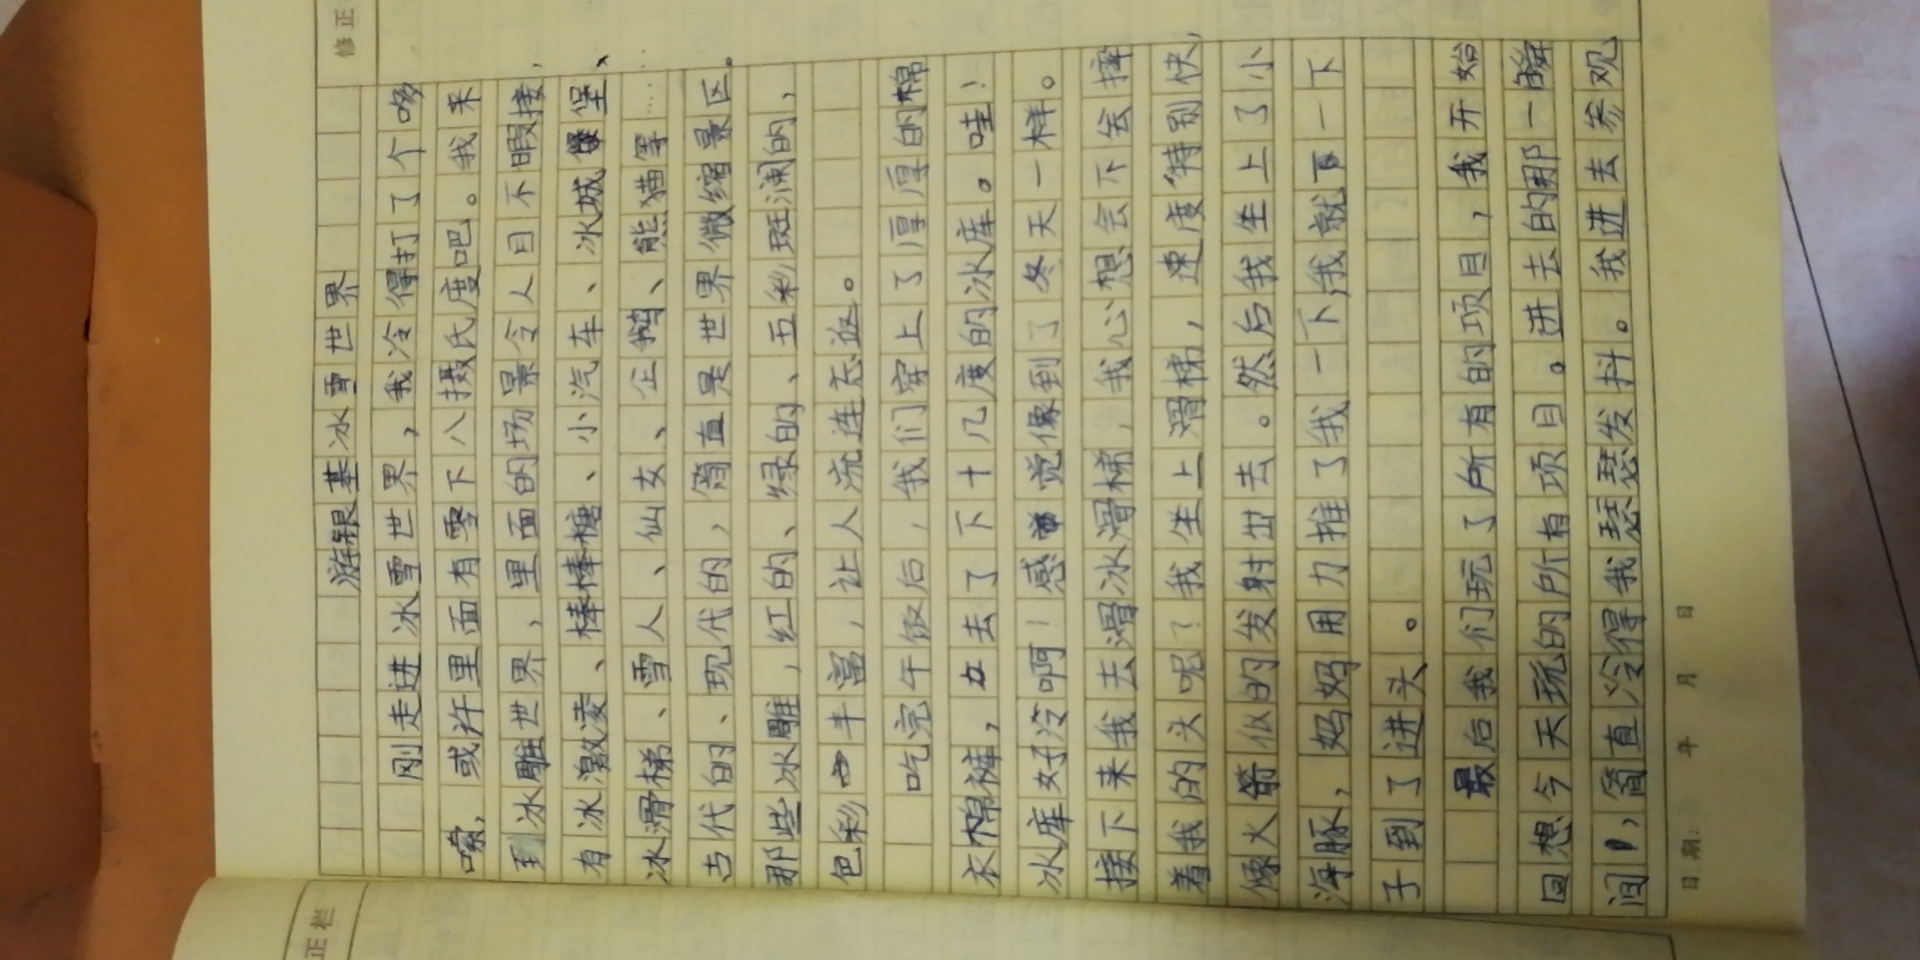 修正
游银基冰雪世界
刚走进冰雪世界，我冷得打了个哆
嗦，或许里面有零下八摄氏度吧。我来
到冰雕世界，里面的场景令人目不暇接，
有冰激凌、棒棒糖、小汽车、冰城堡、
冰滑梯、雪人、仙女、企鹅、熊猫等……
古代的、现代的，简直是世界微缩景区。
那些冰雕，红的、绿的、五彩斑澜的，
色彩丰富，让人流连忘返。
吃完午饭后，我们穿上了厚厚的棉
衣棉裤，去了下十几度的冰库。哇！
冰库好冷啊！感觉像到了冬天一样。
接下来我去滑冰滑梯，我心想会不会摔
着我的头呢？我坐上滑梯，速度特别快，
像火箭似的发射出去。然后我坐上了小
海豚，妈妈用力推了我一下我就一下
子到了进头。
最后我们玩了所有的项目，我开始
回想今天玩的所有项目。进去的那一瞬
间，简直冷得我瑟瑟发抖。我进去参观
日期： 年 月 日
正栏